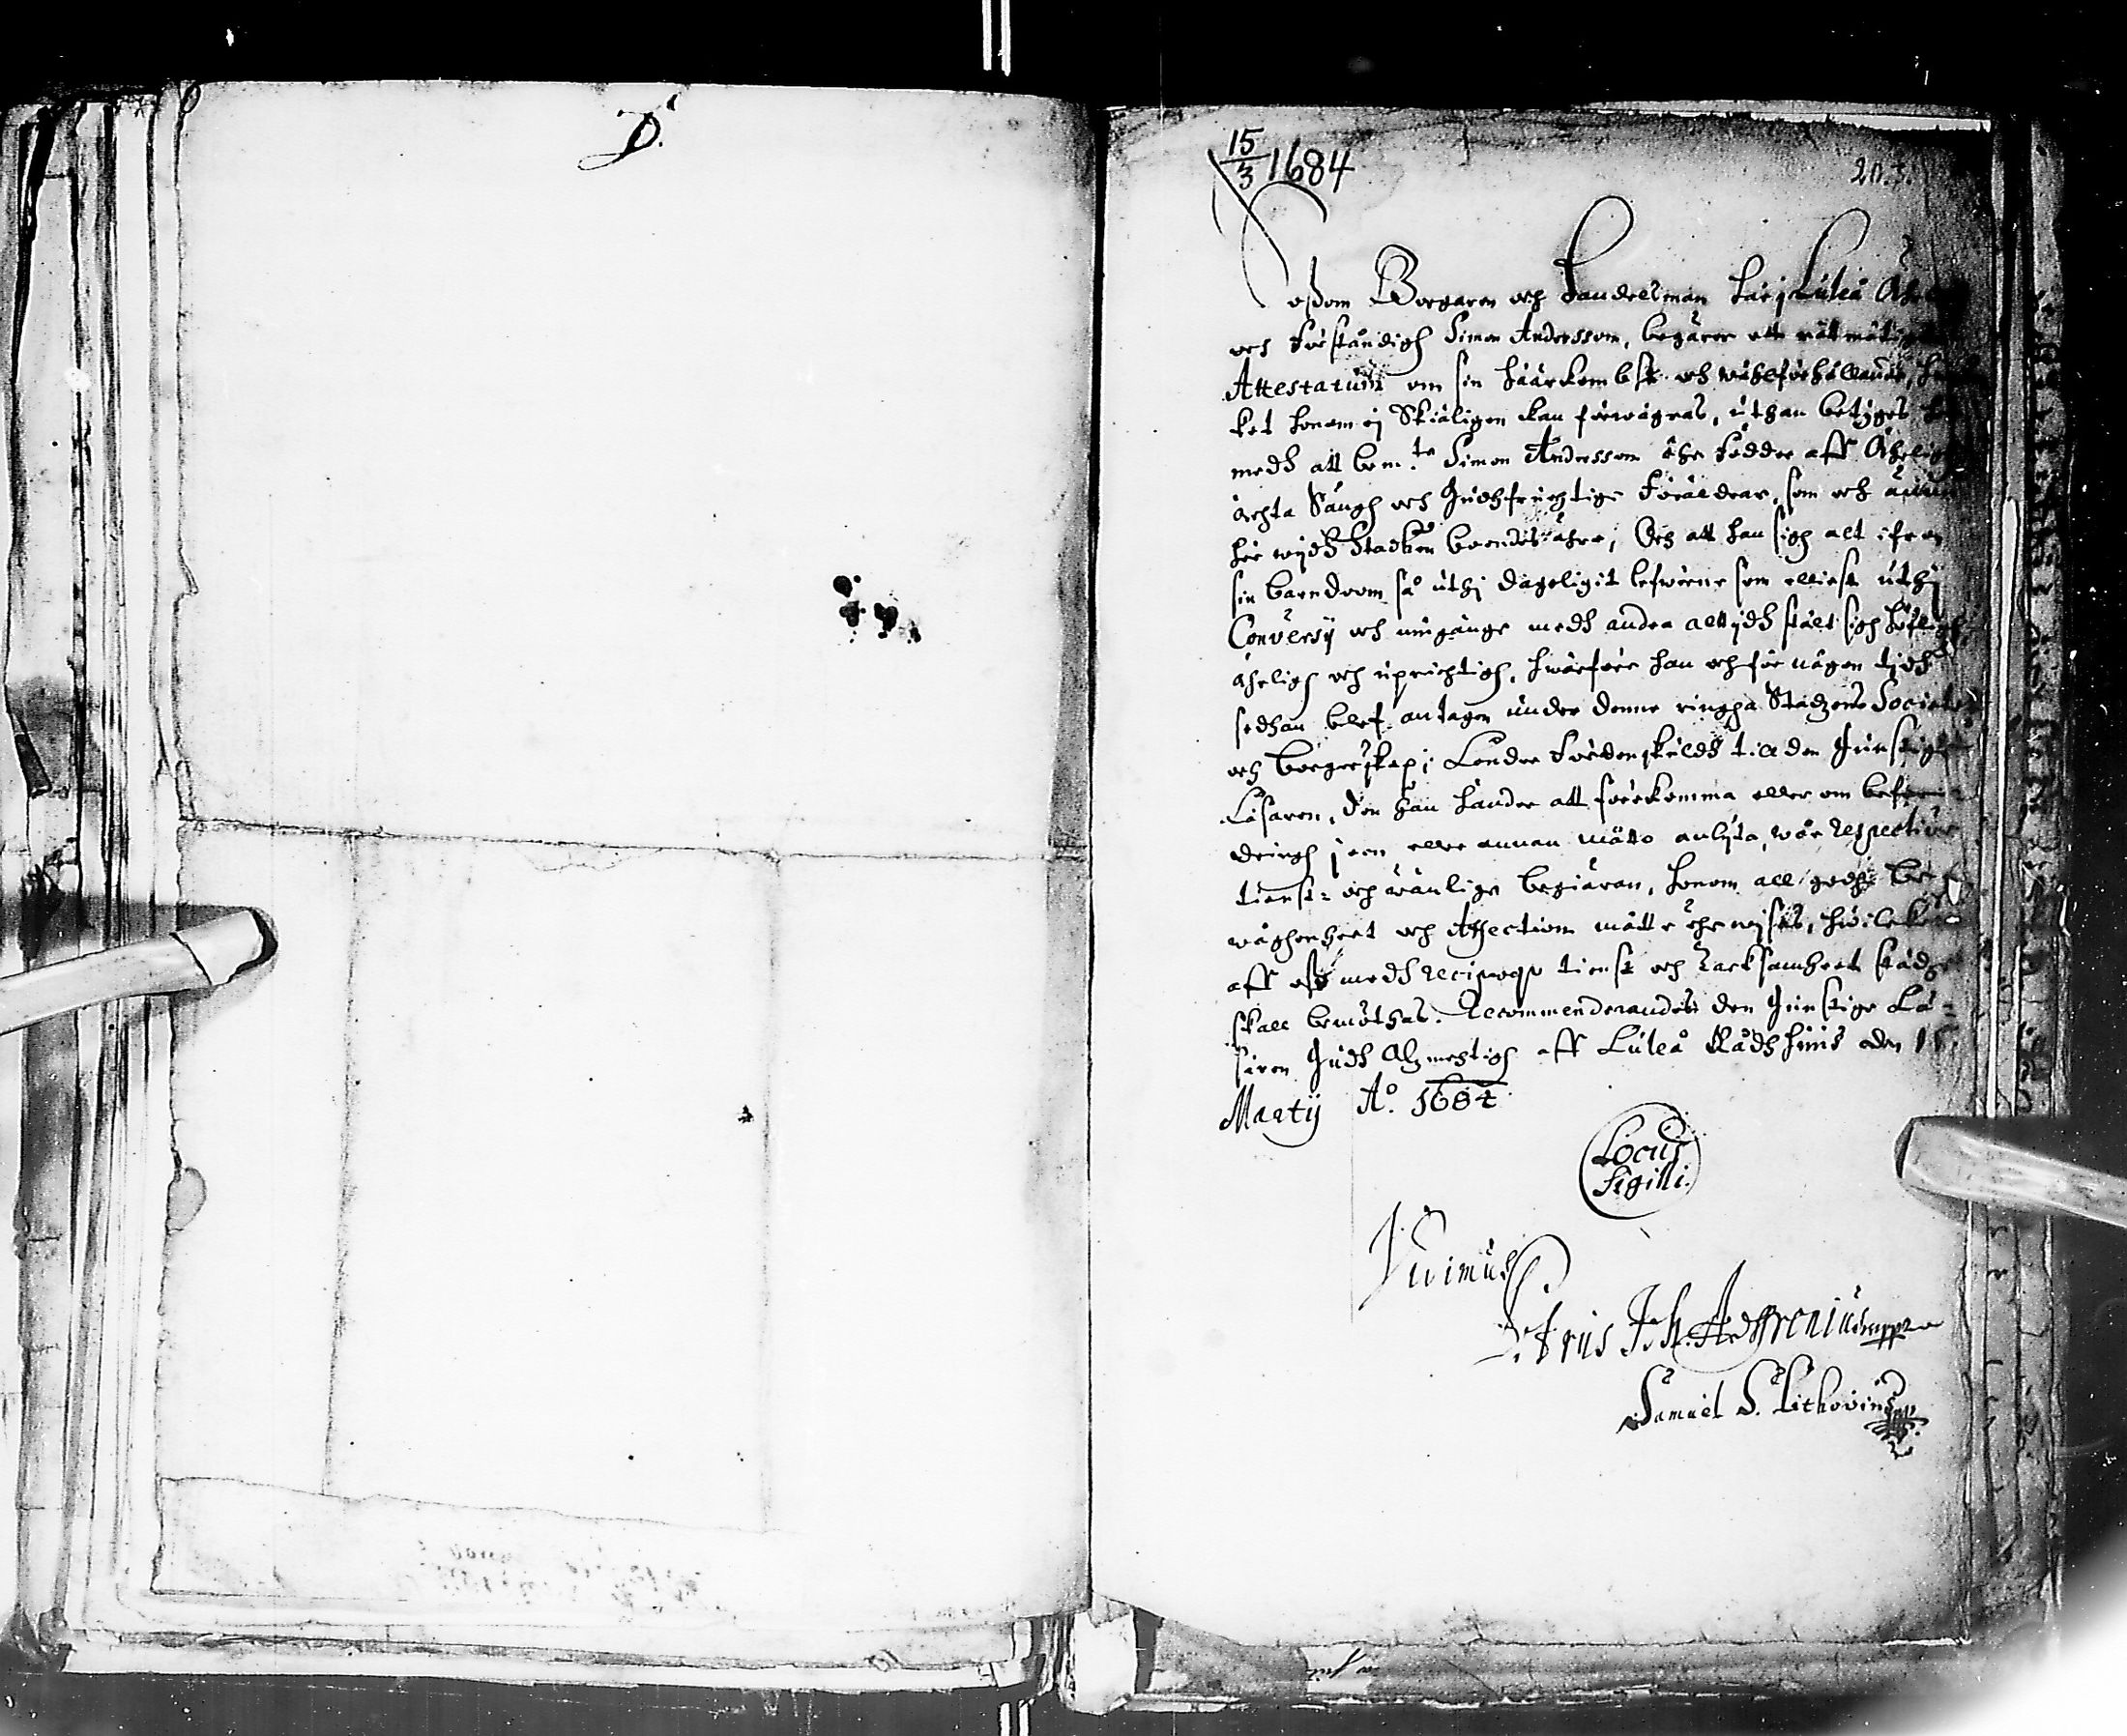 D.
15/3 1684
20.3.
Eptersom Borgaren och Handelsman här j Luleå
och Förståndigh Simon Andersson, begärer ett rättmätigt
Attestatum om sin häärkombst och wählförhållande,
ket honom ej Skiäligen kan förwägras, uthan betyges
medh att bem:te Simon Andersson ähr Födder aff Ährlige
ächta Sängh och Gudhfruchtige Föräldrar, som och ännu
här wijdh Staden boendes ähre, Och att han sigh alt ifrån
sin barndoom så uthj dageligit lefwerne som elliest uthj
Conversij och umgänge medh andra altijdh stält sigh höfligh,
ährligh och uprichtigh, hwarföre han och för någon tijdh
sedhan blef antagen under denne ringha Stadzens Societet
och borgerskap; Länder Fördenskuldh till den Gunstige
Läsaren, den han händer att förekomma eller om beford-
dringh j een eller annan måtto anlijta, wår respective
tienst- och wänlige begiäran, honom all godh be-
wåghenheet och Affection måtte ehrwijsas, hwilcket
aff oss medh reciproqve tienst och Tacksamheet städze
skall bemöthas. Recommenderandes den Gunstige Lä-
saren Gudh Alzmechtigh aff Luleå Rådhhuus den 15.
Martij A:o 1684
Locus
Sigilli.
Vidimus
Petrus Joh. Mppria
Samuel S. Lithovius mpp.